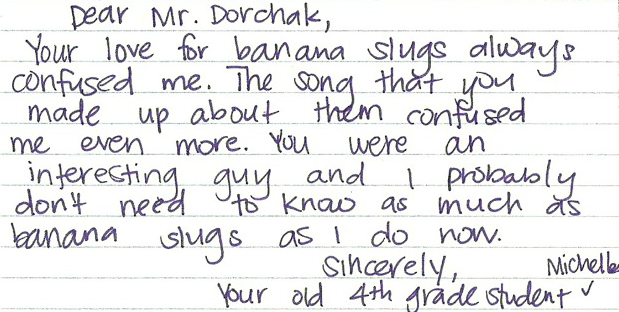 Dear Mr. Dorchak,
Your love for banana slugs always
confused me. The song that you
made up about them confused
me even more. You were an
interesting guy and I probably
don't need to know as much as
banana slugs as I do now.
Sincerely, Michelle
Your old 4th grade student